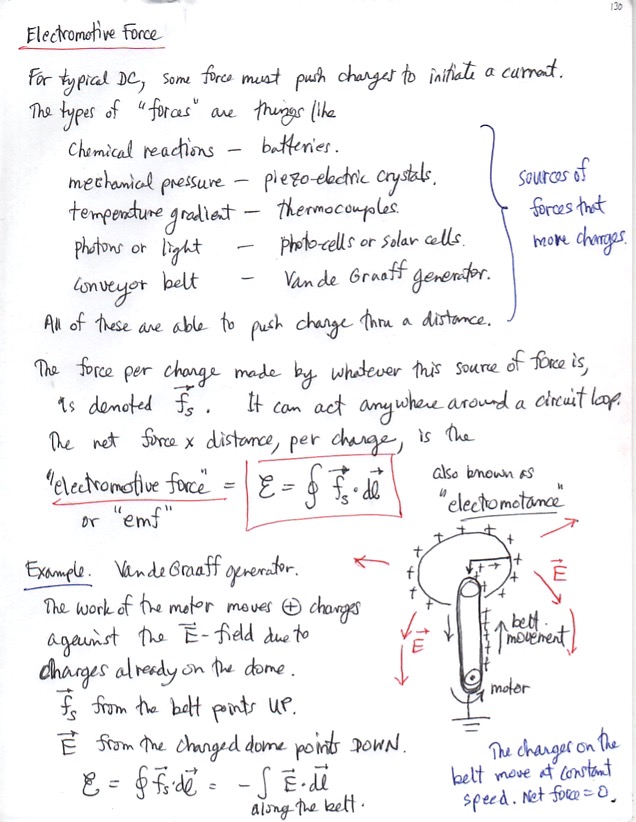 130
Electromotive Force
For typical DC, some force must push charges to initiate a current.
The types of "forces" are things like
Chemical reactions — batteries.
mechanical pressure — piezo-electric crystals.
temperature gradient — thermocouples.
photons or light — photo-cells or solar cells.
conveyor belt — Van de Graaff generator.
sources of
forces that
move charges.
All of these are able to push charge thru a distance.
The force per charge made by whatever this source of force is,
is denoted f⃗s. It can act anywhere around a circuit loop.
The net force x distance, per charge, is the
"electromotive force" = ℰ = ∮ f⃗s · dl⃗
or "emf"
also known as
"electromotance"
Example. Van de Graaff generator.
The work of the motor moves ⊕ charges
against the E⃗-field due to
charges already on the dome.
f⃗s from the belt points UP.
E⃗ from the charged dome points DOWN.
ℰ = ∮ f⃗s · dl⃗ = - ∫ E⃗ · dl⃗
along the belt.
E⃗
E⃗
belt
movement
motor
The charges on the
belt move at constant
speed. Net force = 0.